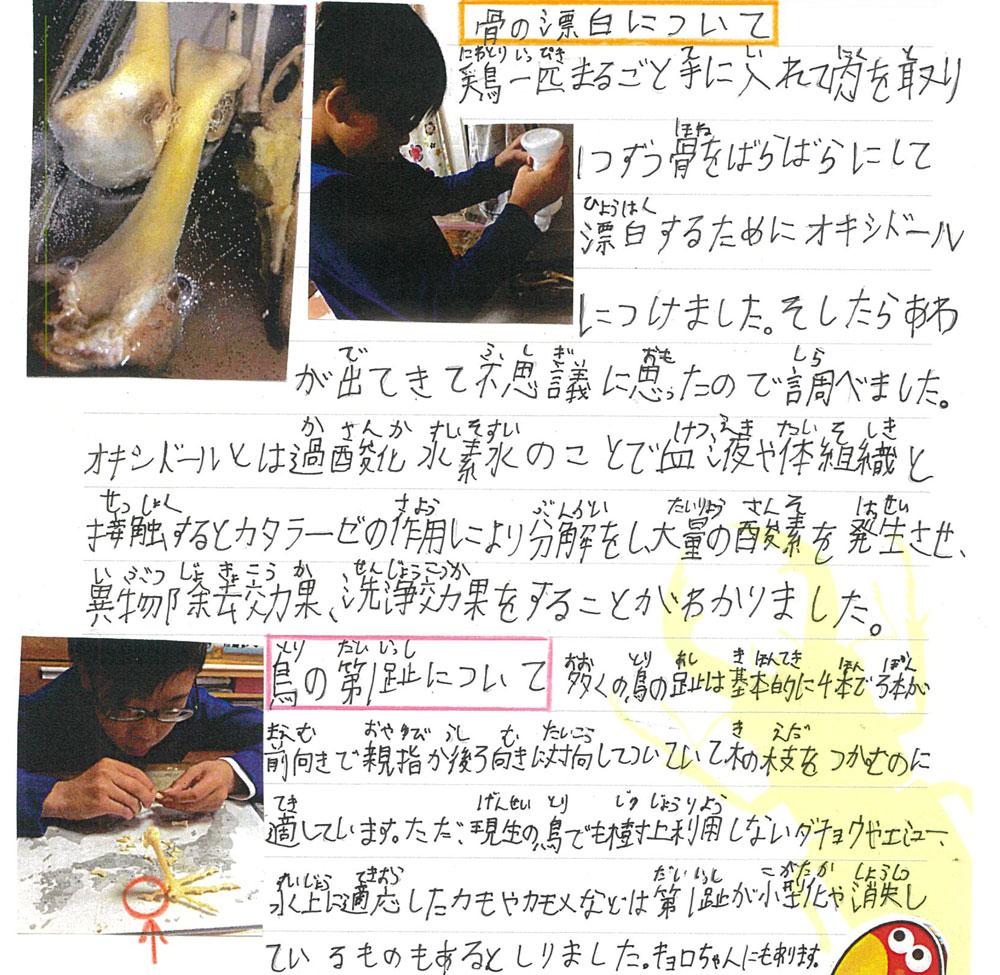 骨の漂白について
鶏一匹まるごと手に入れて肉を取り
1つずつ骨をばらばらにして
漂白するためにオキシドール
につけました。そしたらあわ
が出てきて不思議に思ったので調べました。
オキシドールとは過酸化水素水のことで血液や体組織と
接触するとカタラーゼの作用により分解をし、大量の酸素を発生させ、
異物除去効果、洗浄効果をすることがわかりました。
鳥の第1趾について
多くの鳥の趾は基本的に4本で3本が
前向きで親指が後ろ向きに対向してついていて木の枝をつかむのに
適しています。ただ、現生の鳥でも樹上利用しないダチョウやエミュー、
水上に適応したカモやカモメなどは第1趾が小型化や消失し
ているものもあるとしりました。キョロちゃんにもあります。